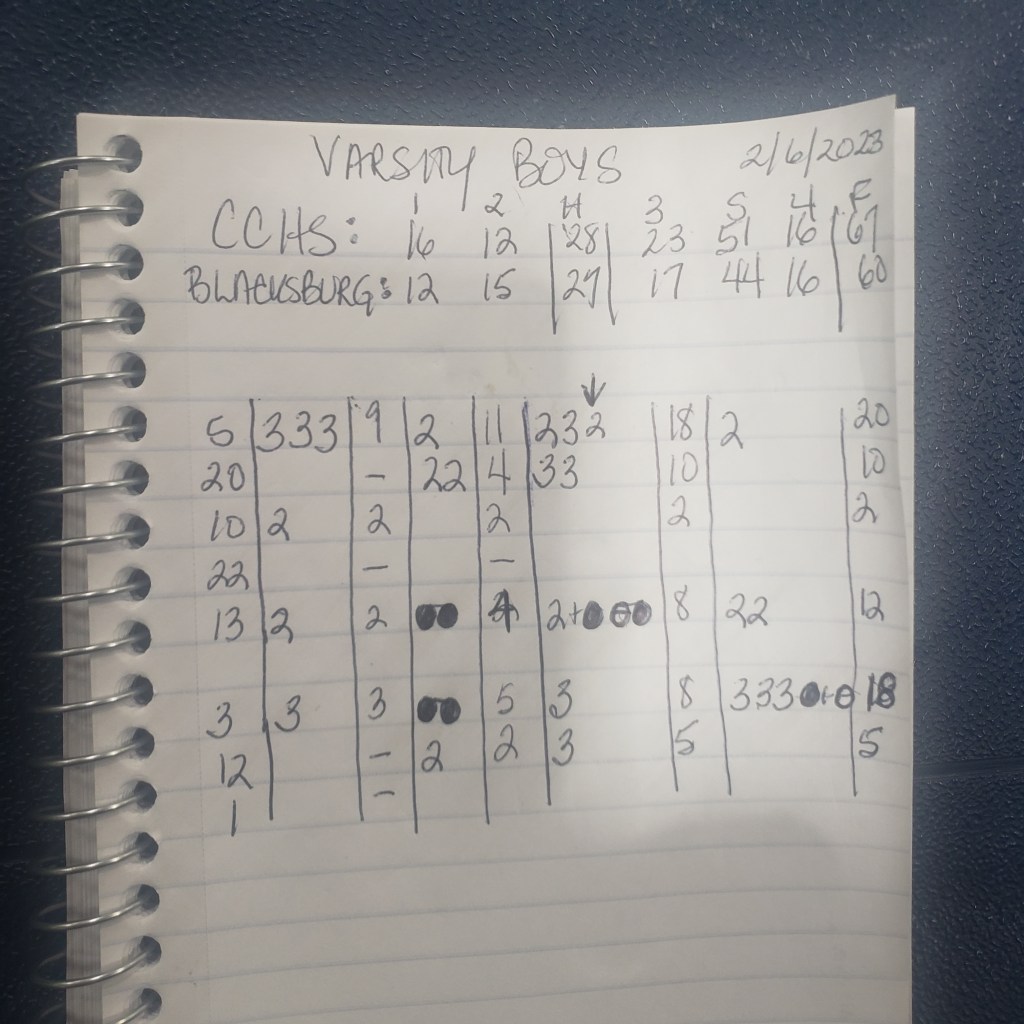 VARSITY BOYS 2/6/2023
1 2 H 3 S 4 F
CCHS: 16 12 28 23 51 16 67
BLACKSBURG: 12 15 27 17 44 16 60
↓
5 333 9 2 11 232 18 2 20
20 - 22 4 33 10 10
10 2 2 2 2 2
22 - -
13 2 2 ●● 4 2+● ●● 8 22 12
3 3 3 ●● 5 3 8 333●+● 18
12 - 2 2 3 5 5
1 -